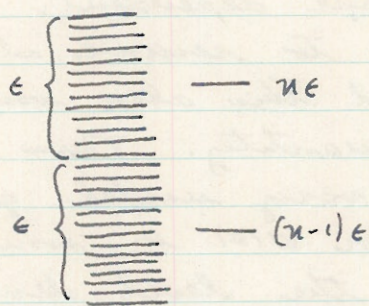 ϵ nϵ
ϵ (n-1)ϵ